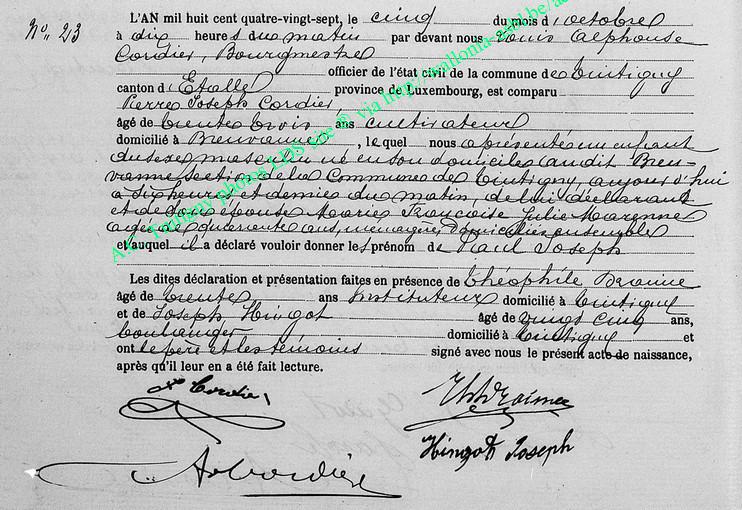 N° 23
L'AN mil huit cent quatre-vingt-sept, le cinq du mois d'octobre
à dix heures du matin par devant nous Louis Alphonse
Cordier, Bourgmestre
officier de l'état civil de la commune de Tintigny
canton d'Etalle province de Luxembourg, est comparu
Pierre Joseph Cordier,
âgé de trente trois ans cultivateur
domicilié à Breuvanne, lequel nous a présenté un enfant
du sexe masculin né en son domicile audit Breu-
vanne section de la Commune de Tintigny, aujourd'hui
à six heures et demie du matin, de lui déclarant
et de son épouse Marie Françoise Julie Marenne
âgée de quarante ans, ménagère, domiciliés ensemble
et auquel il a déclaré vouloir donner les prénom de Paul Joseph
Les dites déclaration et présentation faites en présence de Théophile
âgé de trente ans Instituteur domicilié à Tintigny
et de Joseph Hingot âgé de vingt cinq ans,
boulanger domicilié à Tintigny et
ont le père et les témoins signé avec nous le présent acte de naissance,
après qu'il leur en a été fait lecture.
Cordier
Hingot Joseph
Cordier
A.C. Tintigny photos LDS site © via http://wallonia-asbl.be/